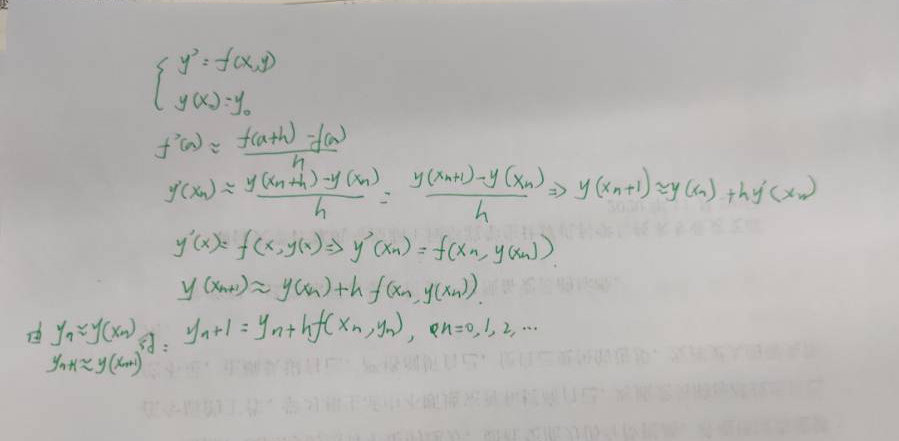 { y' = f(x,y)
y(x₀) = y₀
f'(a) ≈ \frac{f(a+h) - f(a)}{h}
y'(xₙ) ≈ \frac{y(xₙ+h) - y(xₙ)}{h} = \frac{y(xₙ₊₁) - y(xₙ)}{h} ⇒ y(xₙ₊₁) ≈ y(xₙ) + hy'(xₙ)
y'(x) = f(x, y(x)) ⇒ y'(xₙ) = f(xₙ, y(xₙ))
y(xₙ₊₁) ≈ y(xₙ) + h f(xₙ, y(xₙ)).
由 yₙ ≈ y(xₙ)
yₙ₊₁ ≈ y(xₙ₊₁) 得: yₙ₊₁ = yₙ + hf(xₙ, yₙ), n=0, 1, 2, ...